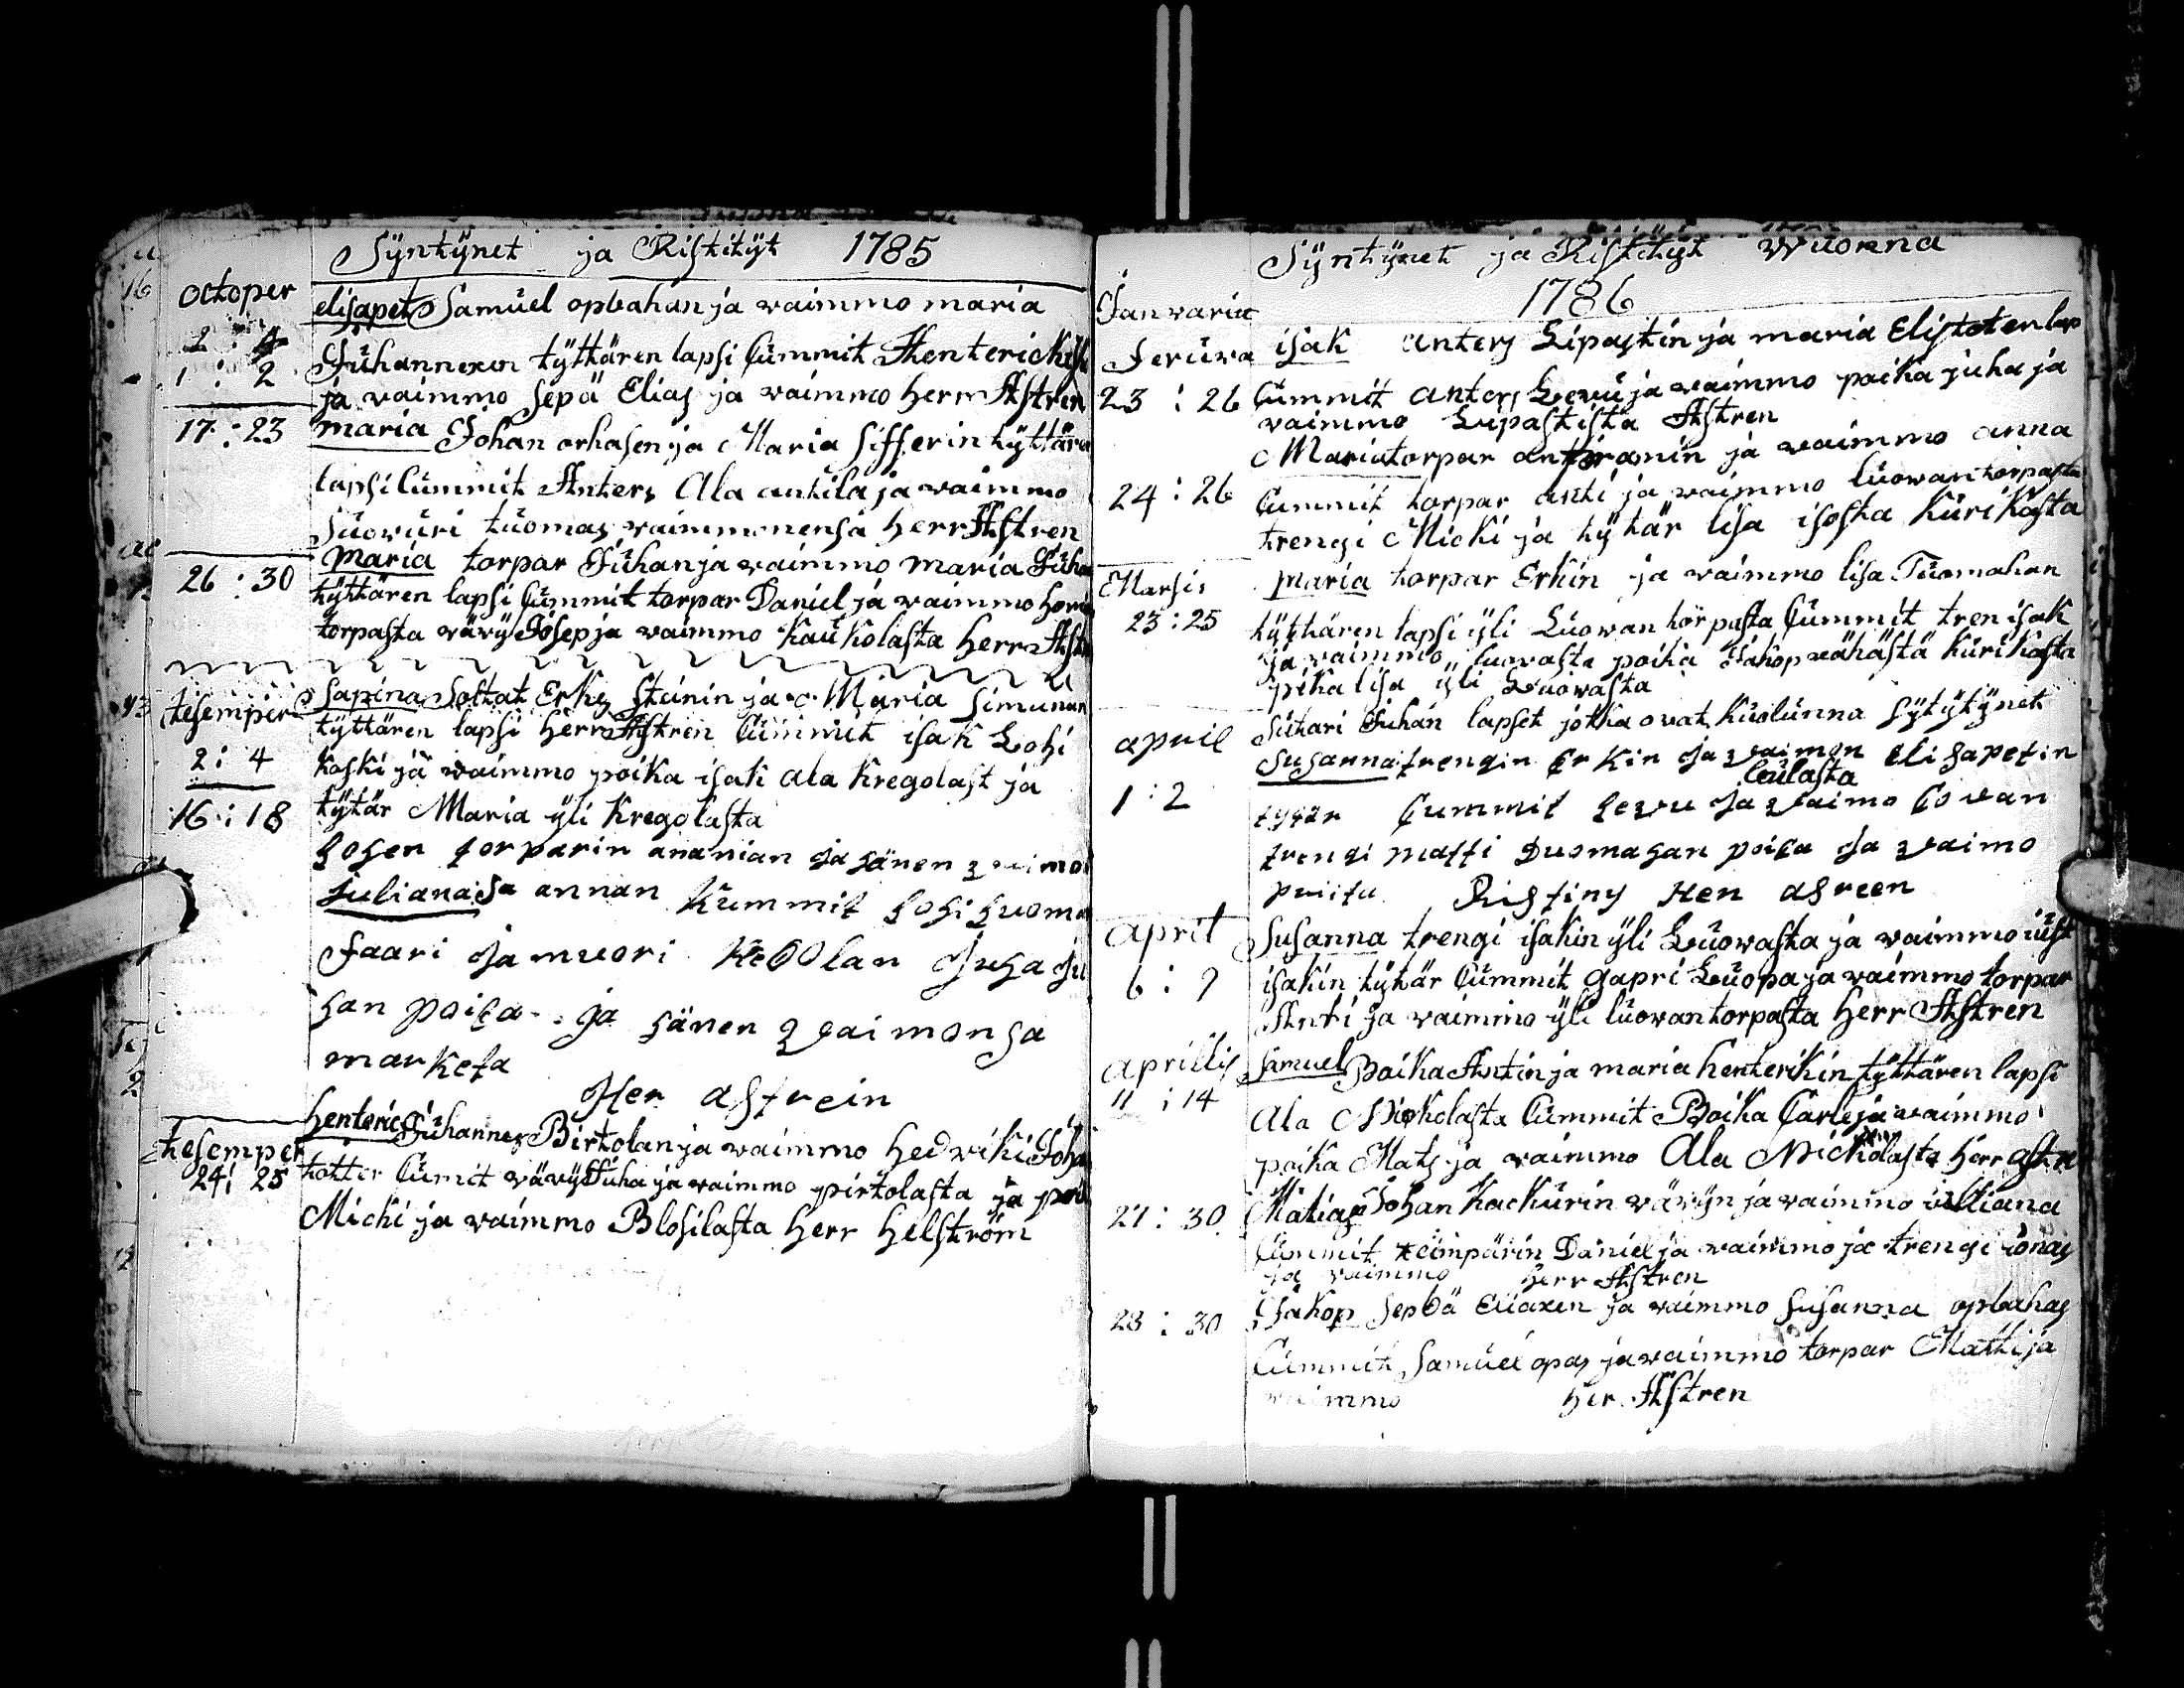 Sÿntÿnet ja Ristitÿt 1785
octoper
elisapet Samuel opbahan ja waimmo maria
2 : 4
Juhannexen tÿttären lapsi Cummit Henterick
1 : 2
ja waimmo sepä Elias ja waimmo herr Astren
17 : 23
maria Johan orhasen ja Maria Sifferin tÿttären
lapsi Cummit Anters Ala antila ja waimmo
Suowuri tuomas waimmonensa herr Astren
26 : 30
Maria torpar Juhan ja waimmo maria Juha
tÿttären lapsi Cummit torpar Daniel ja waimmo
torpasta wäwÿ Josep ja waimmo Kaukolasta herr Astr
tesemper
Sapina Soltat Erkes Stunin ja Maria Simunan
2 : 4
tÿttären lapsi herr Astren Cummit isak Lohi
koski ja waimmo poika isak ala kregolast ja
16 : 18
tÿtär Maria ÿli kregolasta
Lohen torparin ananian ja hänen waimon
Juliana ja annan Kummit Lohi tuoma
faari ja muori Kebolan Juha Ju
han poika ja hänen waimonsa
marketa
Her astrein
Henteric Juhannes Birtolan ja waimmo hedwiki Joha
tesemper
24 : 25
totter Cumit wäwÿ Juha ja waimmo pirtolasta ja poik
Micki ja waimmo Blosilasta herr helström
Sÿntÿnet ja Ristitÿt wuonna
1786
Janwarius
isak anters Lipastin ja maria Elistoten lap
Feruwa
23 : 26
Cummit anters Lewu ja waimmo poika juha ja
waimmo Lipastista Astren
Maria torpar ja waimmo anna
24 : 26
Cummit torpar anti ja waimmo luowan torpasta
trengi Micki ja tÿtär lisa isosta kurikasta
Marsis
maria torpar Erkin ja waimmo lisa Tuomahan
23 : 25
tÿttären lapsi ÿli Luowan torpasta Cummit tren isak
ja waimmo luowasta poika Jakop wähästä kurikasta
pika lisa ÿli Luowasta
april
Sutari Juhan lapset jotka ovat kuolunna sÿtÿtÿnet
Susanna trengin Erkin ja waimon elisapetin
leulasta
1 : 2
tytär Cummit Lewu ja waimo Cowan
trengi matti Duomahan poika ja waimo
Ristiny Her asreen
april
Susanna trengi isakin ÿli Luowasta ja waimmo iust
6 : 9
isakin tÿtär Cummit gapri Luopa ja waimmo torpar
Anti ja waimmo ÿli luowan torpasta herr Astren
aprillis
Samuel Poika Antin ja maria henterikin tÿttären lapsi
11 : 14
Ala Nickolasta Cummit Poika Carle ja waimmo
poika Mats ja waimmo Ala Nickolasta herr astre
27 : 30
Matias Johan Kackurin wäwÿn ja waimmo uliana
Cummit teimpärin Daniel ja waimmo ja trengi ionas
ja waimmo herr Astren
28 : 30
Jakop Sepbä Eliaxen ja waimmo Susanna opbahas
Cummit Samuel opas ja waimmo torpar Matti ja
waimmo her Astren